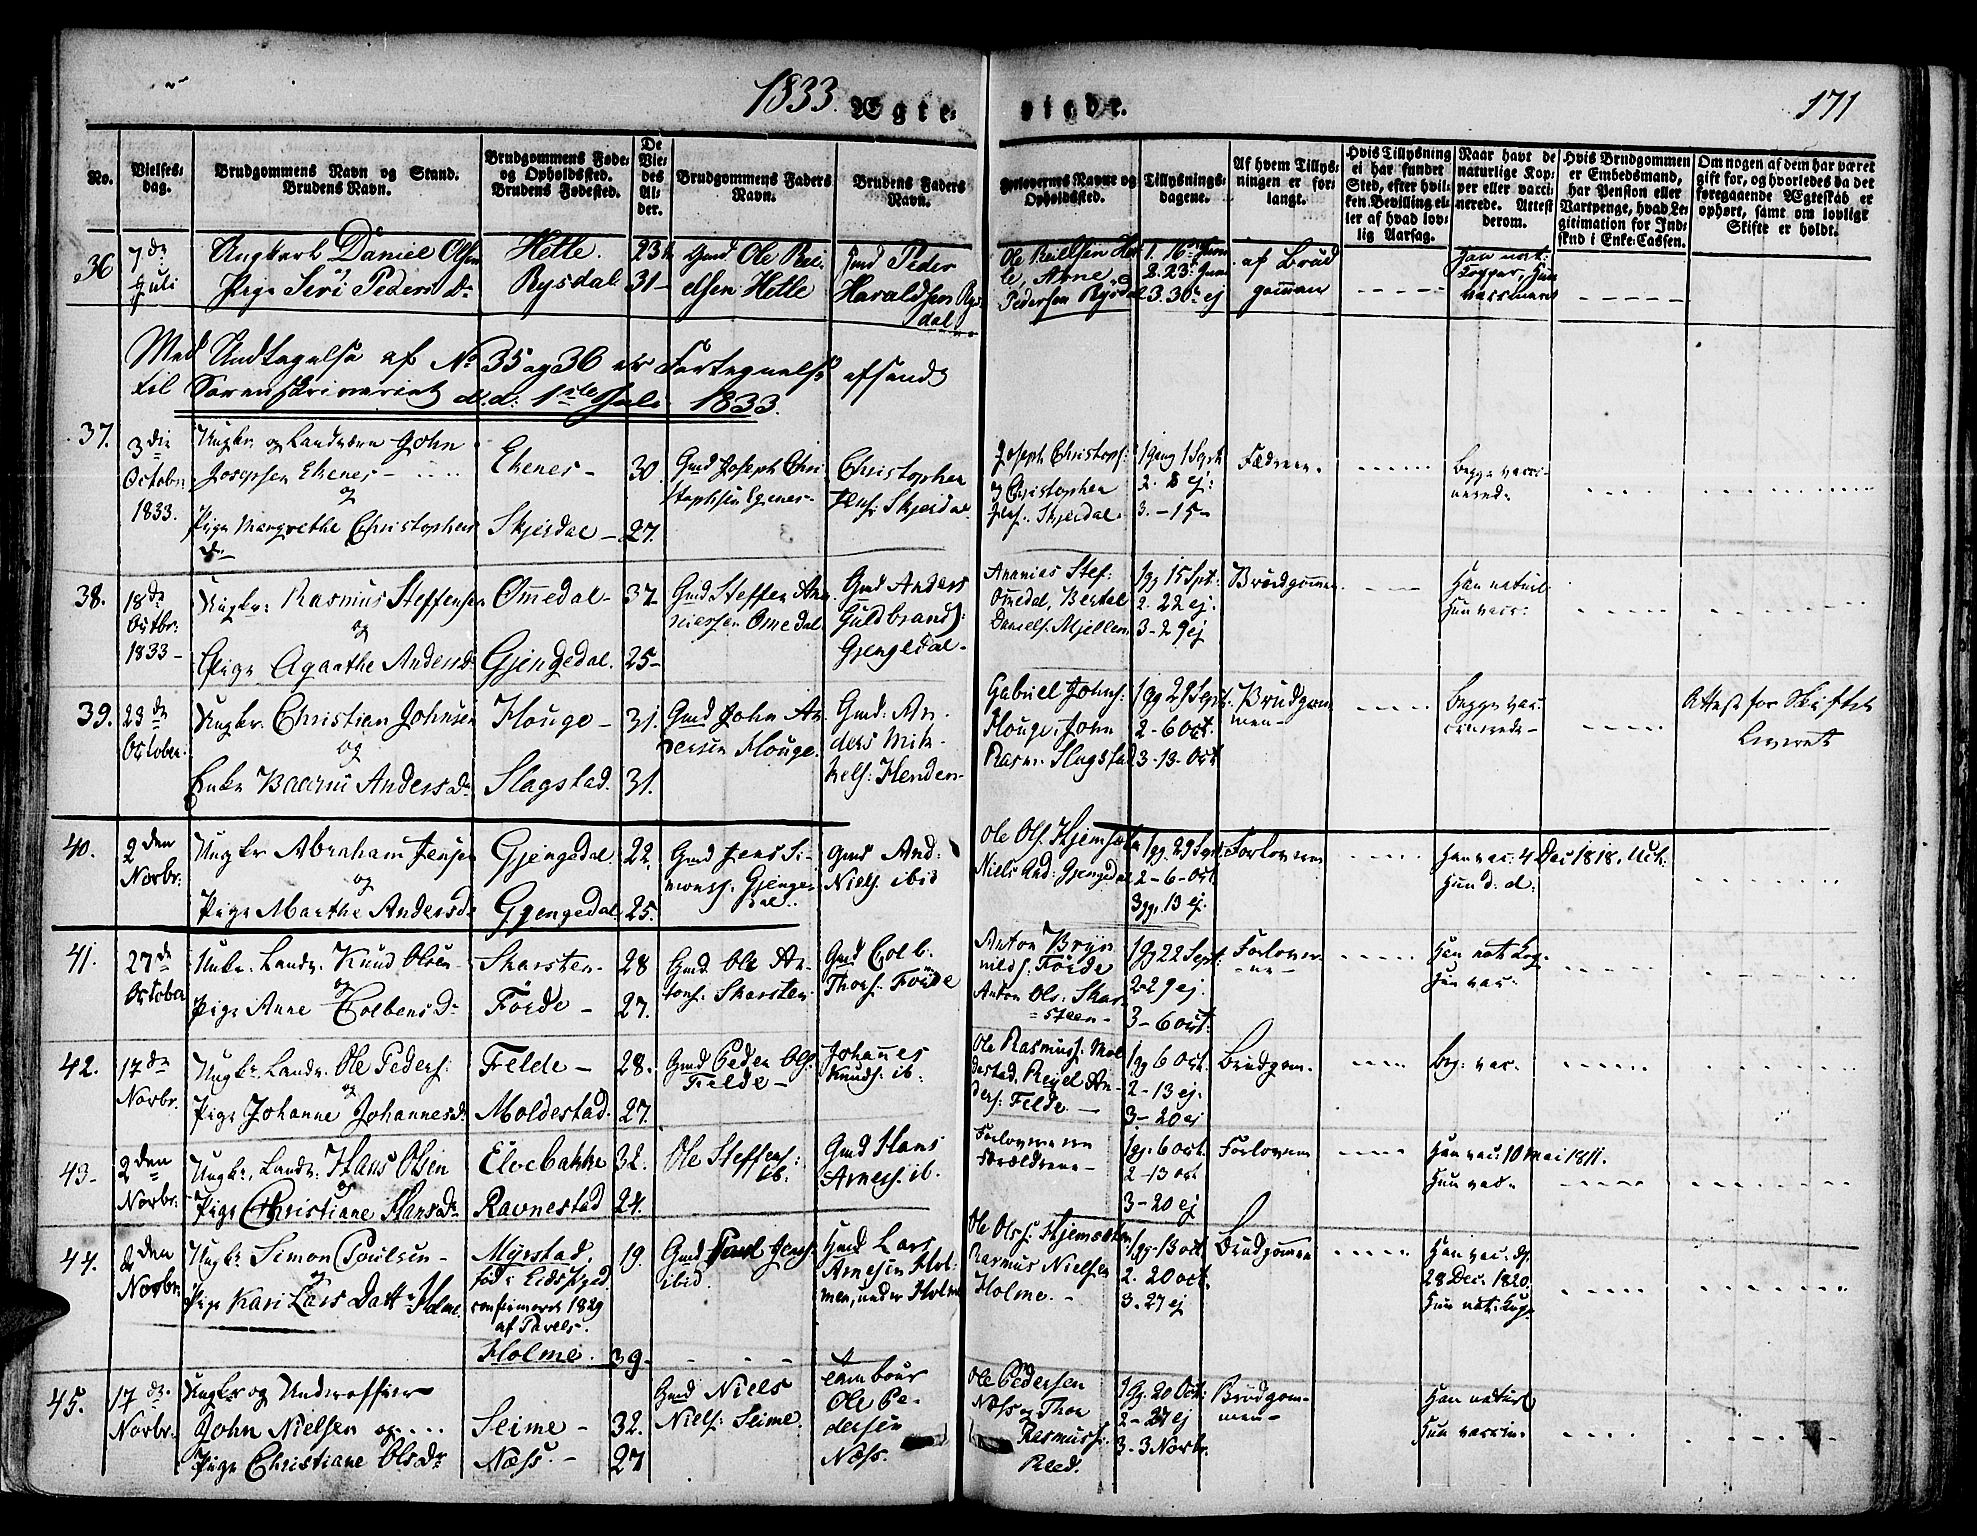 1833. Ægte- viede. 171
No.
Vielses-
dag.
Brudgommens Navn og Stand.
Brudens Navn.
Brudgommens Føde-
og Opholdssted.
Brudens Fødested.
De
Vie-
des
Al-
der.
Brudgommens Faders
Navn.
Brudens Faders
Navn.
Forlovernes Navne og
Opholdssted.
Tillysnings-
dagene.
Af hvem Tillys-
ningen er for-
langt.
Hvis Tillysning
ei har fundet
Sted, efter hvil-
ken Bevilling el-
ler af hvad lov-
lig Aarsag.
Naar havt de
naturlige Kop-
per eller vacci-
nerede. Attest
derom.
Hvis Brudgommen
er Embedsmand,
har Pension eller
Vartpenge, hvad Le-
gitimation for Ind-
skud i Enke-Cassen.
Om nogen af dem har været
gift før, og hvorledes da det
foregaaende Ægteskab er
ophørt, samt om lovligt
Skifte er holdt.
36
7de
Juli
Ungkarl Daniel Olsen
Pige Siri Peders D.
Hetle.
Rysdal
23
31-
Gmd Ole Rei-
elsen Hetle
Gmd Peder
Haraldsen Rys-
dal
Arne
Pedersen Rysdal
1. 16de Juni
2. 23. Juni
3. 30te ej
af Brud
gommen
Han nat:
Kopper, Hun
vaccineret
Med Undtagelse af No 35 og 36 er Fortegnelse afsendt
til Sorenskriveriet d.d. 1ste Juli 1833.
37.
3die
October
1833.
Ungkr og Landværn John
Josephsen Ekenes -
og
Pige Margrethe Christophers
d.
Ekenes -
Skjerdal -
30
27.
Gmd Joseph Chri
stophsen Egenes-
Christopher
Jens: Skjerdal.
Joseph Christoph:
og Christopher
Jens: Skjerdal
1 gang 1 Sept
2. 8 ej:
3. - 15 -
Fædrene.
Begge vacci-
nered:
38.
18de
Octbr:
1833 -
Ungkr: Rasmus Steffensen
og
Pige Agaathe Andersd
Omedal -
Gjengedal.
37
25-
Gmd Steffen An
Omedal
Gmd Anders
Guldbrands:
Gjengedal -
Ananias Stef:
Omedal, Bertel
Daniels. Mjellem
1gg 15 Sept:
2. 22 ej.
3 - 29 ej
Brudgommen.
Han naturl:
Hun vacc:
39.
23de
October.
Ungkr. Christian Johnsen
og
Enke Anders D.
Houge -
Slagstad.
31.
31.
Gmd John An
dersen Houge.
Gmd: An-
ders Mik-
kels: Henden-
Gabriel Johns:
Houge, John
Rasm. Slagstad
1gg 29 Sept.
2 - 6 Oct.
3 - 13 - Oct
Brudgom
men -
Begge vac-
cinerede -
Attest for Skiftet
leveret
40.
2den
Novbr:
Ungkr Abraham Jensen
og
Pige Marthe Andersd
Gjengedal
Gjengedal
22.
25.
Gmd Jens Si-
monss. Gjenge-
dal.
Gmd And:
Niels: ibid
Ole Ols. Hjemsæt
Niels And: Gjengedal
1gg. 29 Sept.
2 - 6 - Oct
3gg. 13 ej.
Forloverne
Han vac: 4 Dec 1818.
Hun d: d:
41.
27de
October
Ungkr. Landv. Knud Olsen
og
Pige Anne Colbens D.
Skarsten-
Förde -
28
27.
Gmd Ole An-
tons: Skarsten
Gmd Colb:
Thors: Förde
Anton Bryn
nilds: Förde
Anton Ols. Skar
steen -
1gg 22 Sept:
2 - 29 ej.
3 - 6 oct:
Forlover-
ne -
Han nat. Kop-
Hun vac -
42.
17de
Novbr.
Ungkr. Landv. Ole Peders:
og
Pige Johanne Johannesd
Felde -
Moldestad.
28.
27.
Gmd Peder Ols.
Felde -
Johannes
Knuds: ib:
Ole Rasmuss: Mol
destad, An-
ders: Felde -
1gg 6 oct.
2 - 13 ej.
3 - 20 ej
Brudgom -
Beg: vac.
43.
2den
Novbr.
Ungkr. Landv. Hans Olsen
og
Pige Christiane Hansd
Elvebakke
Ravnestad
32.
24.
Ole Steffens:
ib.
Gmd Hans
Arnes: ib.
Forloverne
Forældrene -
1gg. 6 oct.
2 - 13 oct
3 - 20 ej
Forlovern
Han vac. 10 mai 1811.
Hun vac.
44.
2den
Novbr.
Ungkr Simon Poulsen -
og
Pige Kari Lars Datt: Holme.
Myrstad,
fød i Eids Pgld
confirmeret 1829
af Pavels.
Holme.
19.
39-
Gmd Poul Jens:
ibid.
Gmd Lars
Arnesen Hol-
men, under Holme
Ole Ols: Hjemsæt
Rasmus Nielsen
Holme. -
1gg - 13 oct.
2. 20 oct.
3 - 27 ej
Brudgommen
Han vac. d.
28 Dec. 1820.
Hun nat: Kop.
45.
17de
Novbr.
Ungkr og Underofficer
John Nielsen og
Pige Christiane Olsd
Seime -
Næss. -
32.
27
Gmd Niels
Niels: Seime.
Tambour
Ole Pe-
dersen
Næss.
Ole Pedersen
Næss og Thor
Rasmuss:
Reed.
1 Gg. 20 Oct:
2 - 27 ej
3 - 3 Novbr.
Brudgom-
men -
Han naturl
Hun vaccin.